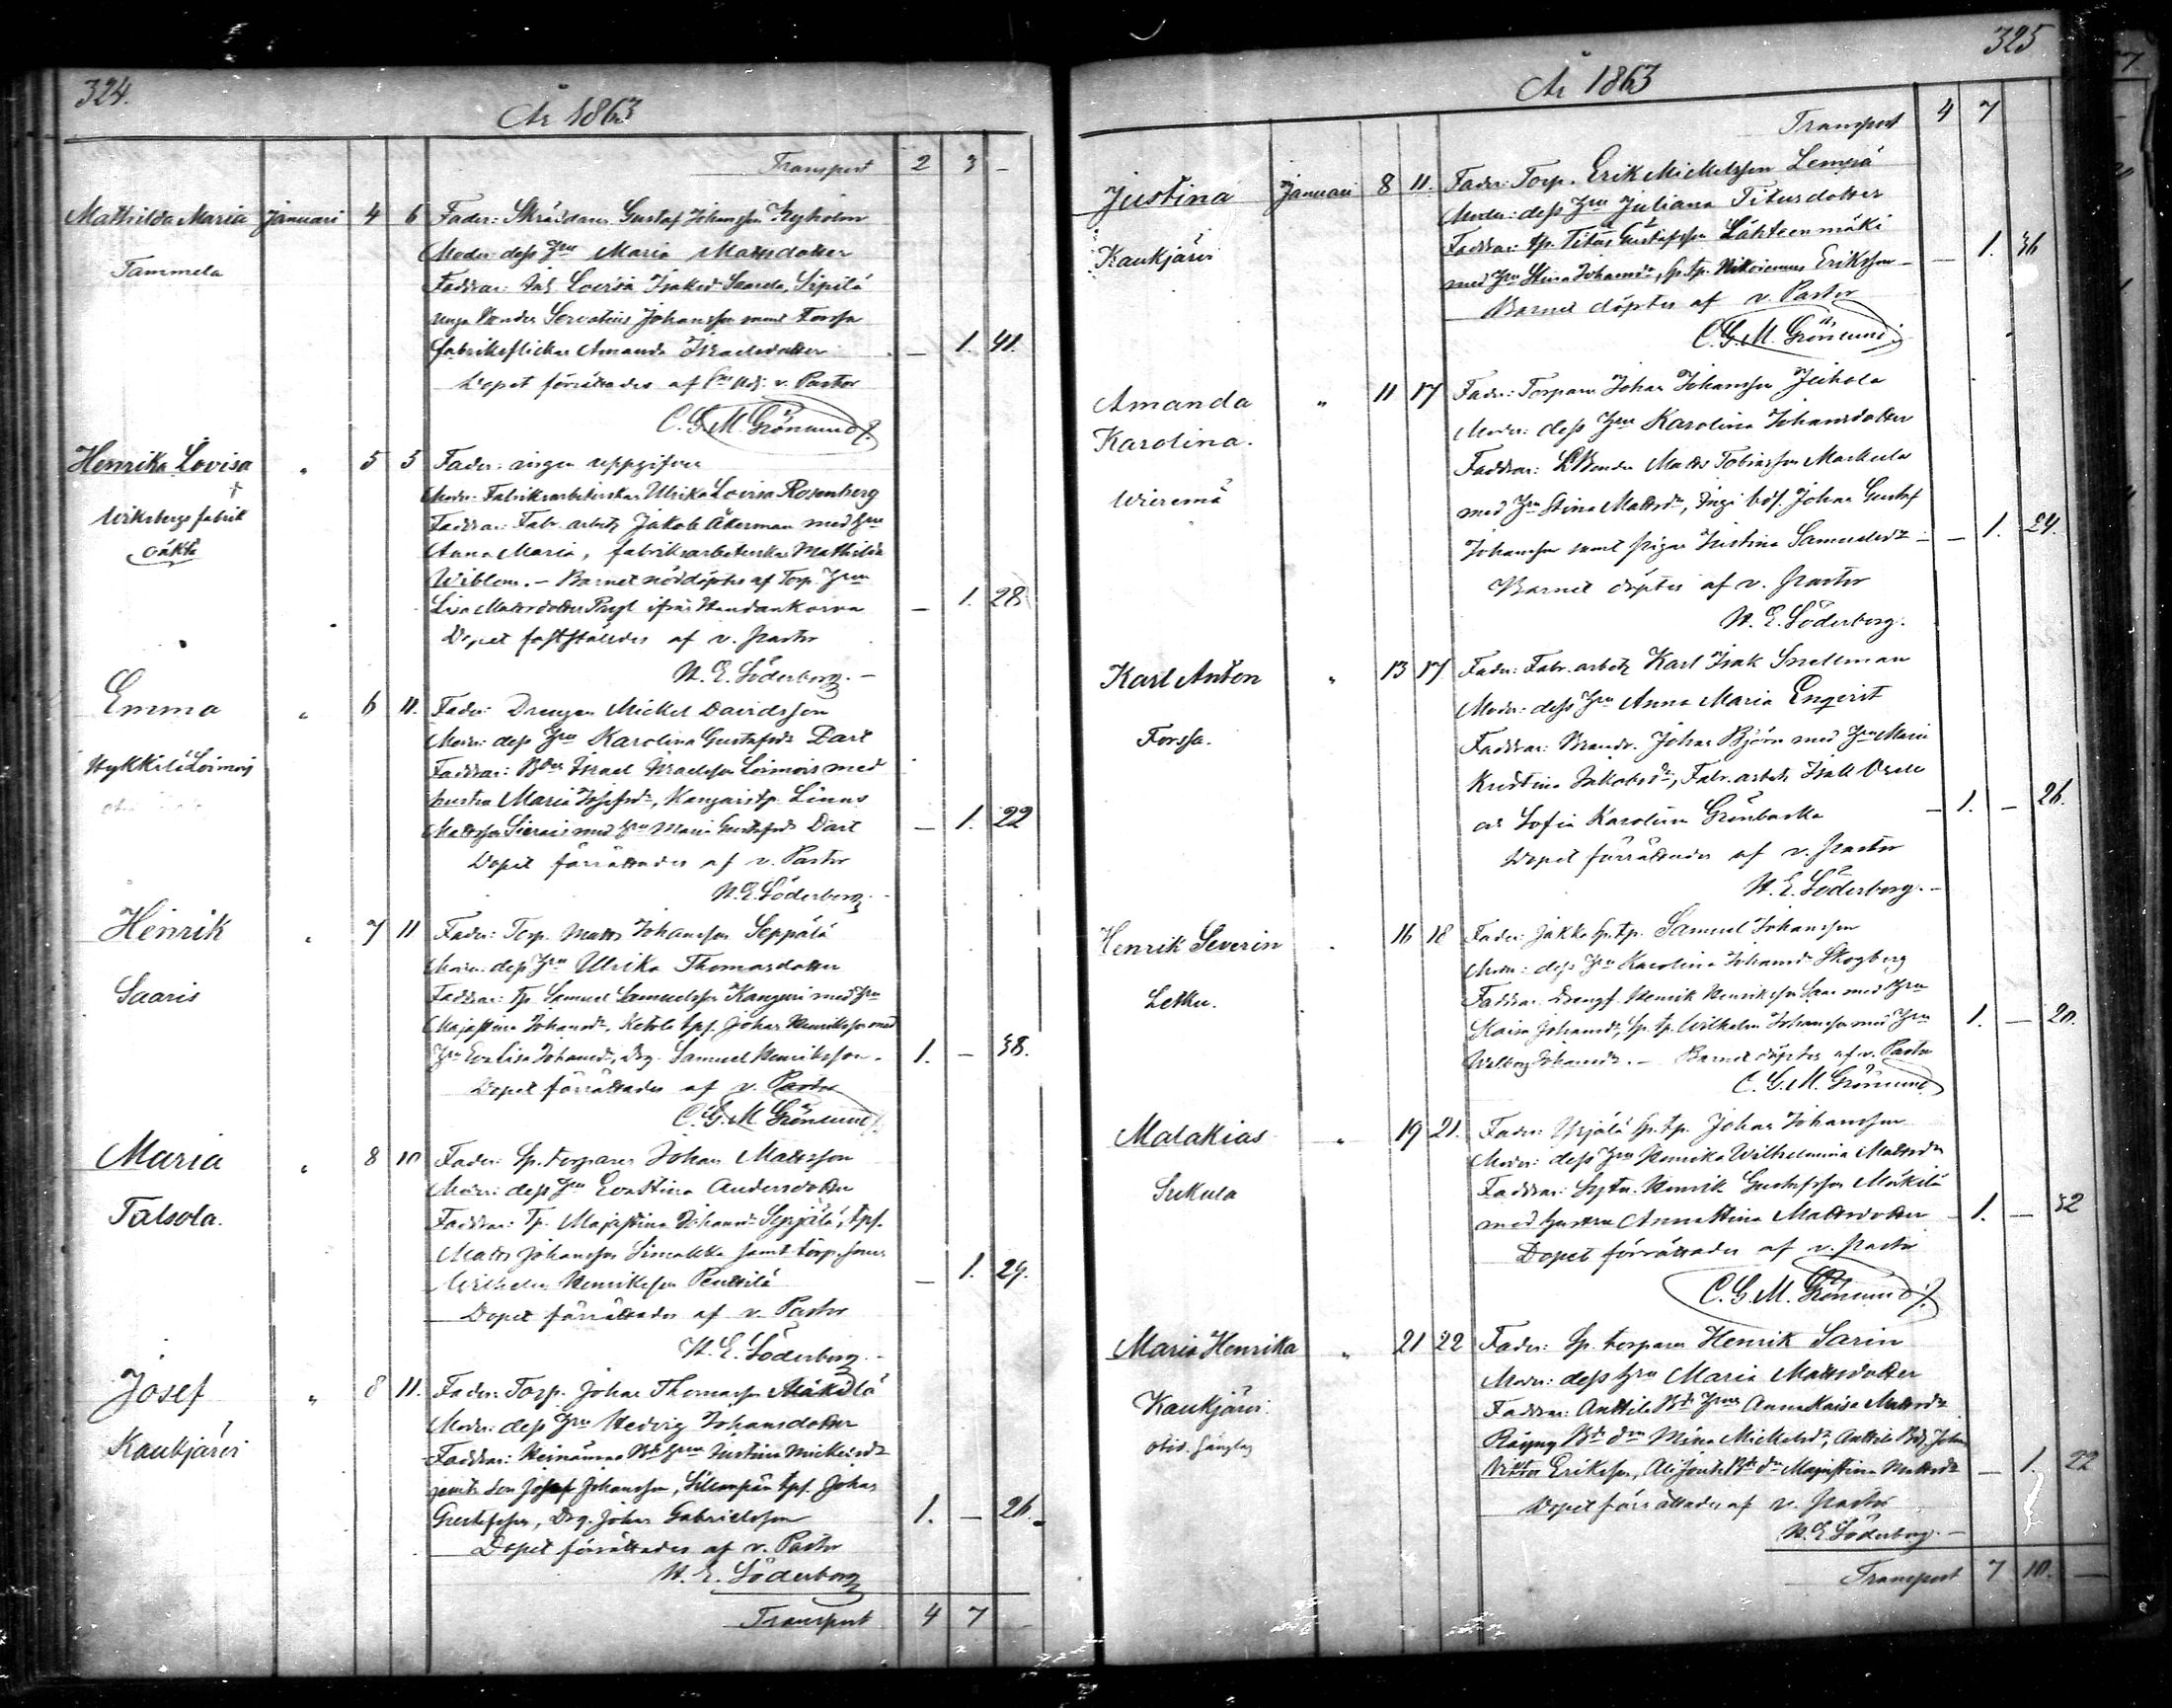 324.
År 1863
Transport 2 3 -
Mathilda Maria Januari 4 6 Fader: Skräddaren Gustaf Johansson
Moder: dess Hru Maria Mattsdotter
Tammela
Faddrar: Lovisa Isaksd:
Servatius Johansson samt Forssa
fabriksflickan Amanda Israelsdotter - 1. 41.
Dopet förrättades af v. Pastor
C. G. M. Grönlund
Henrika Lovisa " 5 5 Fader: ingen uppgifven
Moder: Fabriksarbeterskan Ulrika Lovisa Rosenberg
Wiksbergs fabrik
oäkta
Faddrar: Fabr. arbet. Jakob Åkerman med Hru
Anna Maria, fabriksarbeterskan Mathilda
Wiblom. - Barnet nöddöptes af Torp. Hrun
Lisa Mattsdotter ifrån - 1. 28.
Dopet fastställdes af v. Pastor
N. E. Söderborg. -
Emma " 6 11. Fader: Drengen Mickel Davidsson
Moder: dess Hru Karolina Gustafsdr Dart
Hykkilä Loimois
Faddrar: Israel Israelsson Loimois med
hustru Maria Josefsdr, Linus
Mattsson med Hru Maria Gustafsdr Dart - 1. 22
Dopet förrättades af v. Pastor
N. E. Söderborg
Henrik " 7 11 Fader: Torp. Matts Johansson Seppälä
Moder: dess Hru Ulrika Thomasdotter
Saaris
Faddrar: Tp. Samuel Samuelsson Kangari med Hru
Majastina Johansdr, Ketola tps. Johan Henriksson med
Hru Eva Lisa Johansdr, Drg. Samuel Henriksson. 1. - 38.
Dopet förrättades af v. Pastor
C. G. M. Grönlund
Maria " 8 10 Fader: Sp. torparen Johan Mattsson
Moder: dess Hru Evastina Andersdotter
Talsola.
Faddrar: Tp. Majastina Johansdr Seppälä, tps.
Matts Johansson Simakka samt torpsonen
Wilhelm Henriksson Penttilä - 1. 29.
Dopet förrättades af v. Pastor
N. E. Söderborg. -
Josef " 8 11. Fader: Torp. Johan Thomasson Mäkilä
Moder: dess Hru Hedvig Johansdotter
Kaukjärvi
Faddrar: Heinämaa Bd Hrun Justina Mickelsdr
jemte son Josef Johansson, tps. Johan
Gustafsson, Drg. Johan Gabrielsson 1. - 26.
Dopet förrättades af v. Pastor
N. E. Söderborg
Transport 4 7
325
År 1863
Transport 4 7
Justina Januari 8 11. Fader: Torp. Erik Mickelsson Lempiä
Moder: dess Hru Juliana Titusdotter
Kaukjärvi
Faddrar: tp. Titus Gustafsson Lähteenmäki
med Hru Stina Johansdr, Sp. tp. Nikodemus Eriksson - - 1. 36
Barnet döptes af v. Pastor
C. G. M. Grönlund
Amanda " 11 17 Fader: Torparen Johan Johansson Juhola
Karolina.
Moder: dess Hru Karolina Johansdotter
Wieremä
Faddrar: Matts Tobiasson Markula
med Hru Stina Mattsdr, Johan Gustaf
Johansson samt pigan Justina Samuelsdr - 1. 24.
Barnet döptes af v. Pastor
N. E. Söderborg.
Karl Anton " 13 17 Fader: Fabr. arbet Karl Isak Snellman
Moder: dess Hru Anna Maria Enqvist
Forssa.
Faddrar: Johan Björn med Hru Maria
Kristina Jakobsdr, Fabr. arbet. Isak
och Sofia Karolina Grönbacka - 1. - 26.
Dopet förrättades af v. Pastor
N. E. Söderborg. -
Henrik Severin 16 18 Fader: Jakko Sp. tp. Samuel Johansson
Moder: dess Hru Karolina Johansdr Skogberg
Letku.
Faddrar: Henrik Henriksson med Hru
Kaisa Johansdr, Sp. tp. Wilhelm Johansson med Hru 1. - 20.
Walborg Johansdr. - Barnet döptes af v. Pastor
C. G. M. Grönlund
Malakias " 19 21. Fader: Yrjölä Sp. tp. Johan Johansson
Moder: dess Hru Henrika Wilhelmina Mattsdr
Sukula
Faddrar: Henrik Gustafsson Mäkilä
med hustru Annastina Mattsdotter - 1. - 32
Dopet förrättades af v. Pastor
C. G. M. Grönlund
Maria Henrika " 21 22 Fader: Sp. torparen Henrik Sarin
Moder: dess Hru Maria Mattsdotter
Kaukjärvi
Faddrar: Anttila Bd Hrun Anna Kaisa Mattsdr
Bd dr Mina Mickelsdr, Anttila Bds. Johan
Viktor Eriksson, Bd dr Majastina Mattsdr - 1. 22
Dopet förrättades af v. Pastor
N. E. Söderborg. -
Transport 7 10. -